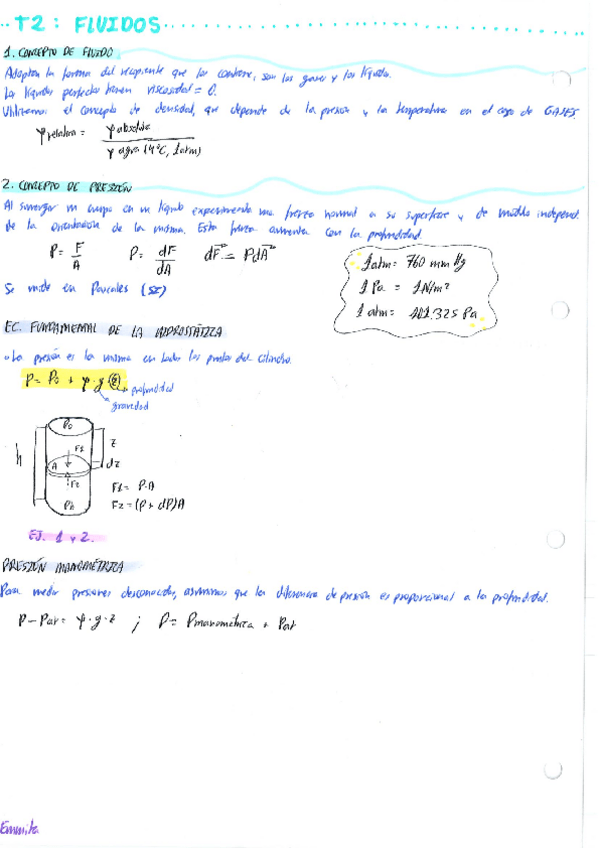 T2: FLUIDOS
1. CONCEPTO DE FLUIDO
Adoptan la forma del recipiente que los contiene, son los gases y los líquidos.
Los líquidos perfectos tienen viscosidad = 0.
Utilizamos el concepto de densidad, que depende de la presión y la temperatura en el caso de GASES.
φ relativa = φ absoluta / φ agua (4ºC, 1atm)
2. CONCEPTO DE PRESIÓN
Al sumergir un cuerpo en un líquido experimenta una fuerza normal a su superficie y de módulo independ.
de la orientación de la misma. Esta fuerza aumenta con la profundidad.
P = F/A P = dF/dA dF = PdA
Se mide en Pascales (SI)
1atm = 760 mm Hg
1 Pa = 1N/m²
1 atm = 101.325 Pa
EC. FUNDAMENTAL DE LA HIDROSTÁTICA
La presión es la misma en todos los puntos del cilindro.
P = P0 + φ·g·z
profundidad
gravedad
P0
h
z
F1
A
dz
F2
Ph
F1 = P·A
F2 = (P + dP)A
EJ. 1 y 2.
PRESIÓN MANOMÉTRICA
Para medir presiones desconocidas, asumimos que la diferencia de presión es proporcional a la profundidad.
P - Pat = φ·g·z ; P = Pmanométrica + Pat
Emmita